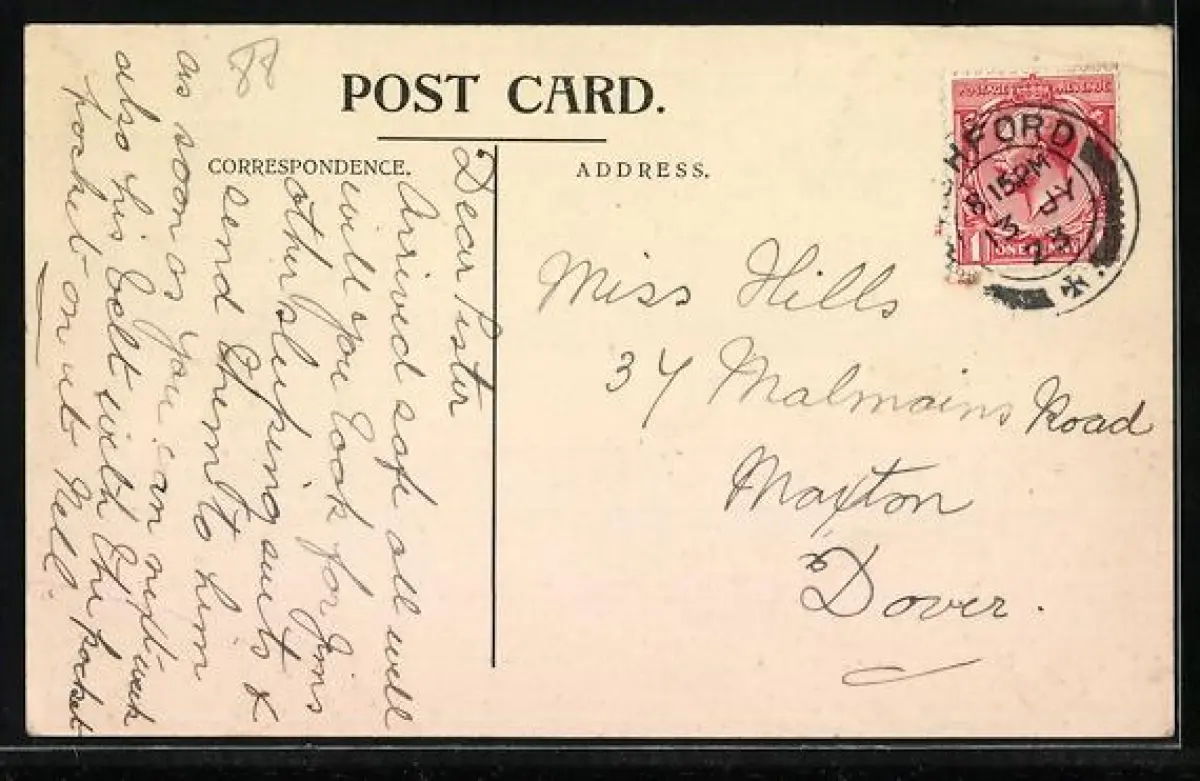 POST CARD.
CORRESPONDENCE.
ADDRESS.
Dear Sister
Arrived safe all well
will you look for Jims
other sleeping suits &
send them to him
as soon as you can next week
also his belt with the pocket
pocket on it Nell.
Miss Hills
37 Malmains Road
Maxton
Dover.
POSTAGE REVENUE
1 ONE PENNY
HFORD
8.15PM
13 JY
23